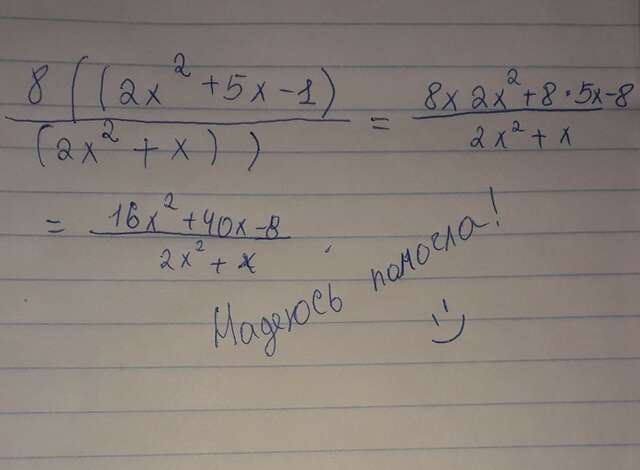 8 ((2x² + 5x - 1) / (2x² + x)) = (8 x 2x² + 8 · 5x - 8) / (2x² + x)
= (16x² + 40x - 8) / (2x² + x)
Надеюсь помогла!